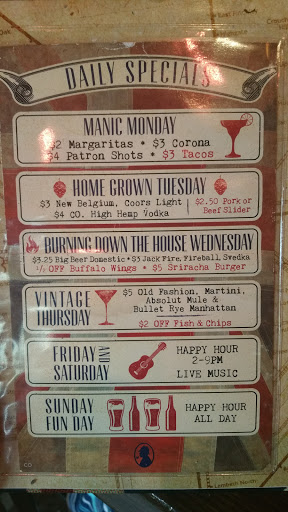 DAILY SPECIALS
MANIC MONDAY
$2 Margaritas * $3 Corona
$4 Patron Shots * $3 Tacos
HOME GROWN TUESDAY
$3 New Belgium, Coors Light
$4 CO. High Hemp Vodka
$2.50 Pork or
Beef Slider
BURNING DOWN THE HOUSE WEDNESDAY
$3.25 Big Beer Domestic * $3 Jack Fire, Fireball, Svedka
½ OFF Buffalo Wings * $5 Sriracha Burger
VINTAGE
THURSDAY
$5 Old Fashion, Martini,
Absolut Mule &
Bullet Rye Manhattan
$2 OFF Fish & Chips
FRIDAY
AND
SATURDAY
HAPPY HOUR
2-9PM
LIVE MUSIC
SUNDAY
FUN DAY
HAPPY HOUR
ALL DAY
CO
Lambeth North